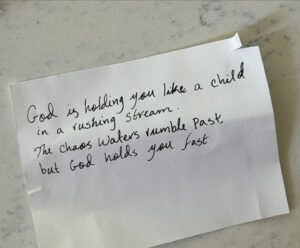 God is holding you like a child
in a rushing stream.
The chaos waters rumble past,
but God holds you fast